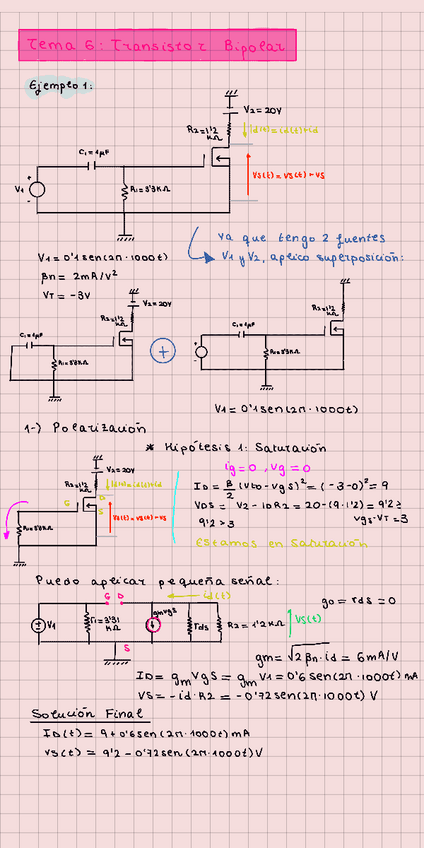 Tema 6: Transistor Bipolar
Ejemplo 1:
V2 = 20V
R2 = 1'2 KΩ
C1 = 1μF
V1
R1 = 3'3KΩ
V1 = 0'1 sen(2π · 1000t)
βn = 2mA/V²
VT = -3V
ya que tengo 2 fuentes
V1 y V2, aplico superposición:
V2 = 20V
R2 = 1'2 KΩ
C1 = 1μF
R1 = 3'3KΩ
+
R2 = 1'2 KΩ
C1 = 1μF
R1 = 3'3KΩ
V1 = 0'1 sen(2π · 1000t)
1-) Polarización
* Hipótesis 1: Saturación
ig = 0, vg = 0
V2 = 20V
G
D
S
ID = β/2 (Vto - vgs)² = (-3-0)² = 9
VDS = V2 - IDR2 = 20-(9·1'2) = 9'2 ≥
9'2 > 3
vgs-VT = 3
Estamos en Saturación
Puedo aplicar pequeña señal:
G D
id(t)
V1
gmvgs
rds
R2 = 1'2KΩ
VS(t)
S
go = rds = 0
gm = √2βn·id = 6mA/V
ID = gm VgS = gm V1 = 0'6 sen(2π · 1000t) mA
VS = -id · R2 = -0'72 sen(2π · 1000t) V
Solución Final
ID(t) = 9 + 0'6 sen(2π · 1000t) mA
VS(t) = 9'2 - 0'72 sen(2π · 1000t) V